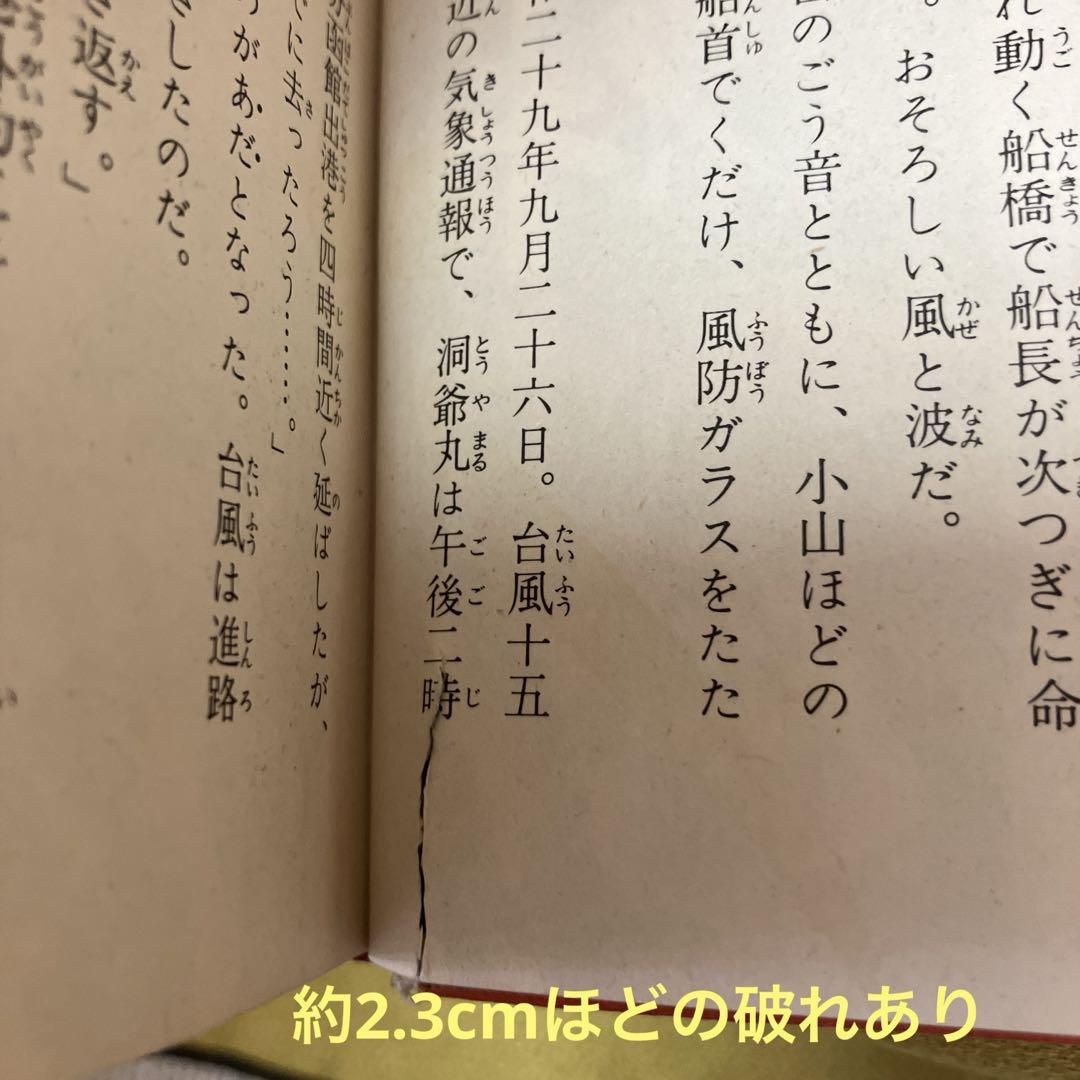 れ動く船橋で船長が次つぎに命
。おそろしい風と波だ。
のごう音とともに、小山ほどの
船首でくだけ、風防ガラスをたた
二十九年九月二十六日。台風十五
近の気象通報で、洞爺丸は午後二時
函館出港を四時間近く延ばしたが、
でに去ったろう……。」
のがあだとなった。台風は進路
をしたのだ。
き返す。」
約2.3cmほどの破れあり